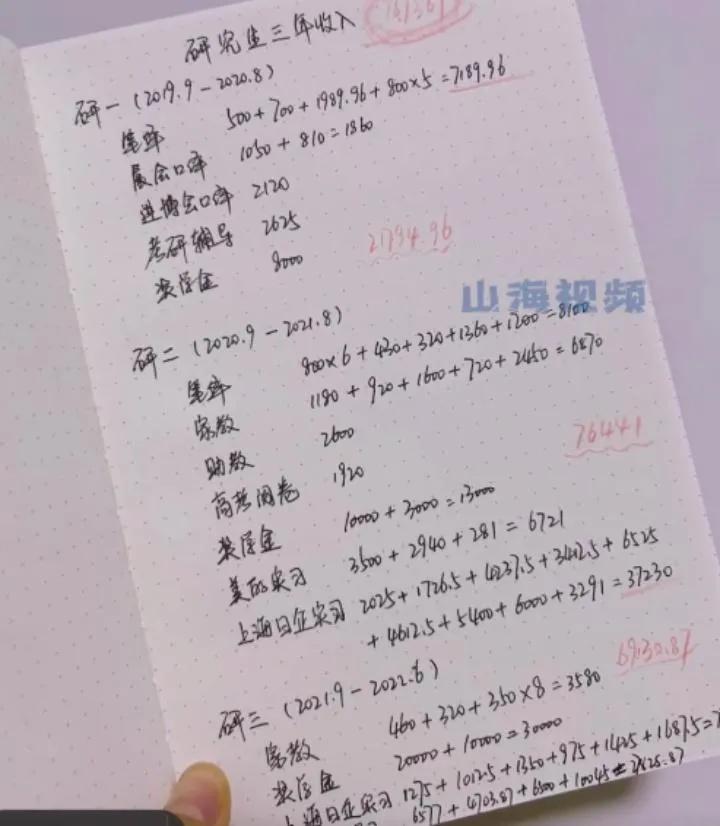 研究生三年收入
研一 (2019.9-2020.8)
笔译 500+700+1989.96+800×5=7189.96
展会口译 1050+810=1860
进博会口译 2120
考研辅导 2625
奖学金 8000
21794.96
山海视频
研二 (2020.9-2021.8)
笔译 800×6+430+320+1360+1200=8100
家教 1180+920+1600+720+2450=6870
助教 2600
高考阅卷 1920
76441
奖学金 10000+3000=13000
美的实习 3500+2940+281=6721
上海日企实习 2025+1726.5+4237.5+3412.5+6525
+4612.5+5400+6000+3291=37230
69130.87
研三 (2021.9-2022.6)
家教 460+320+350×8=3580
奖学金 20000+10000=30000
上海日企实习 1275+1012.5+1350+975+1425+1687.5=
6577+4703.87+6500+10045=